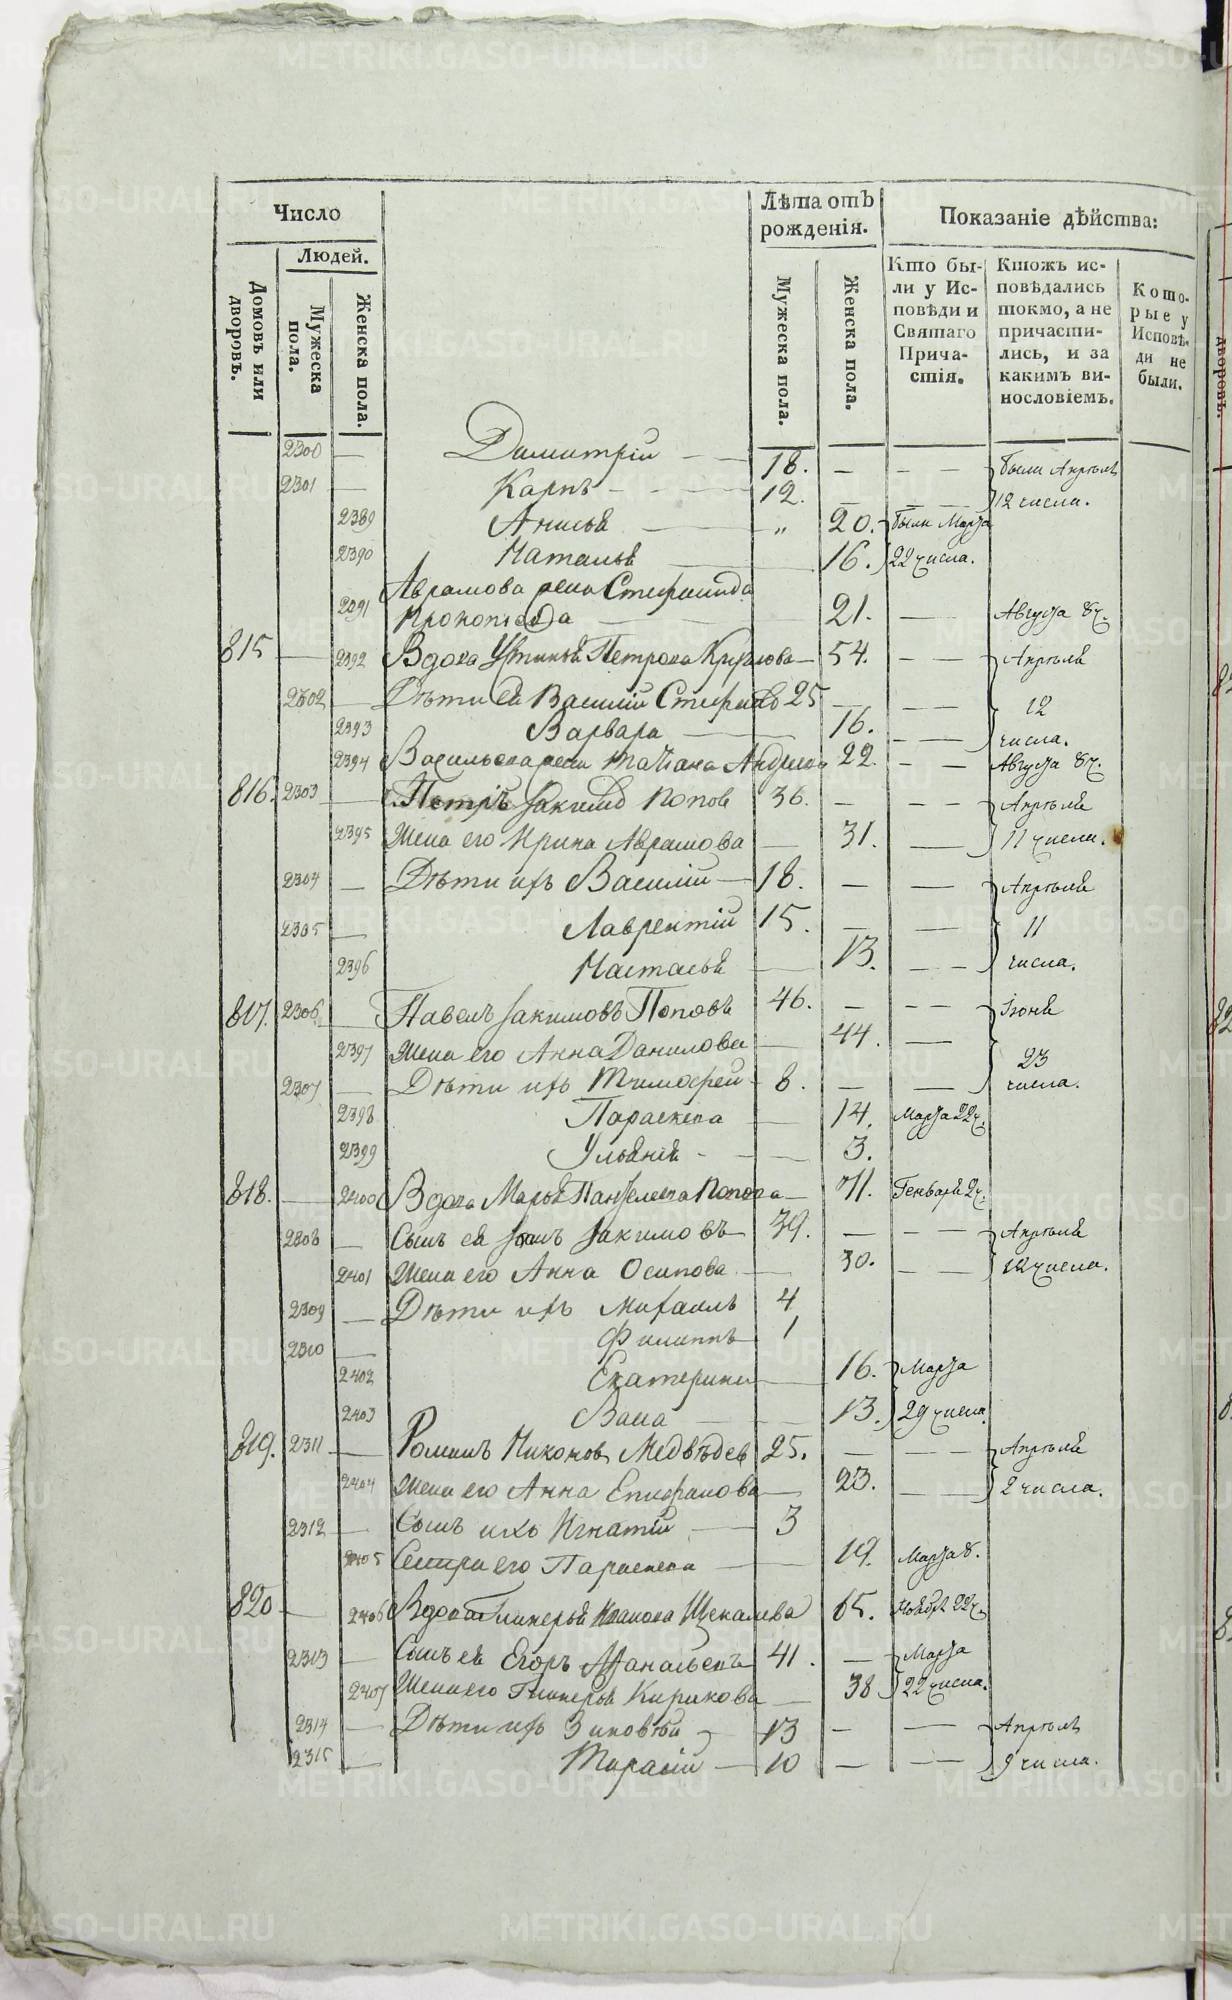 Число
Лѣта отъ рожденія.
Показаніе дѣйства:
Людей.
Домовъ или дворовъ.
Мужеска пола.
Женска пола.
Мужеска пола.
Женска пола.
Кто бы-
ли у Ис-
повѣди и
Святаго
Прича-
стія.
Ктожъ ис-
повѣдались
токмо, а не
причасти-
лись, и за
какимъ ви-
нословіемъ.
Кото-
рые у
Исповѣ-
ди не
были.
2300 — Димитрій — — 18. — — — были Апрѣля
2301 — Карпъ — — — 12. — — — 12 числа.
2389 Анисья — „ 20. были Марта
2390 Наталья — 16. 22 числа.
Аврамова жена Стефанида
2391 Прокопьева — 21. — Августа 8 ч.
815 — 2392 Вдова Устинья Петрова — 54. — — Апрѣля
2302 — Дѣти ея Василій 25 — — — 12
2393 Варвара — 16. — — числа.
2394 Васильева жена Татіана 22. — — Августа 8 ч.
816. 2303 — Петръ Іакимовъ Попов 36. — — Апрѣля
2395 Жена его Ирина Аврамова — 31. — 11 числа.
2304 — Дѣти ихъ Василій — 18. — — Апрѣля
2305 — Лаврентій 15. — — 11
2396 Настасья — 13. — — числа.
817. 2306 — Павелъ Іакимовъ Поповъ 46. — — — Іюня
2397 Жена его Анна Данилова — 44. — 23
2307 — Дѣти ихъ Тимофей — 8. — — числа.
2398 Параскева — 14. Марта 22 ч.
2399 Ульянія - — — 3.
818. — 2400 Вдова Марья Попова — 71. Генваря 2 ч.
2308 — Сынъ ея Іоаннъ Іакимовъ — 39. — — — Апрѣля
2401 Жена его Анна Осипова — 30. — — 12 числа.
2309 — Дѣти ихъ Михаилъ 4
2310 — Филиппъ 1
2402 Екатерина — 16. Марта
2403 — — 13. 29 числа
819. 2311 — Романъ Никоновъ Медвѣдев 25. — — — Апрѣля
2404 Жена его Анна Епифанова — 23. — — 2 числа.
2312 — Сынъ ихъ Игнатій — 3
2405 Сестра его Параскева — — 19. Марта 8.
820 — 2406 Вдова Гликерья Иванова 65. Ноября 22 ч.
2313 — Сынъ ея Егоръ 41. — Марта
2407 Жена его Гликерья Кирикова — 38 22 числа.
2314 — Дѣти ихъ Зиновѣй 13 — — Апрѣля
2315 — Тарасій — 10 — — — 9 числа.
дворовъ.
METRIKI.GASO-URAL.RU